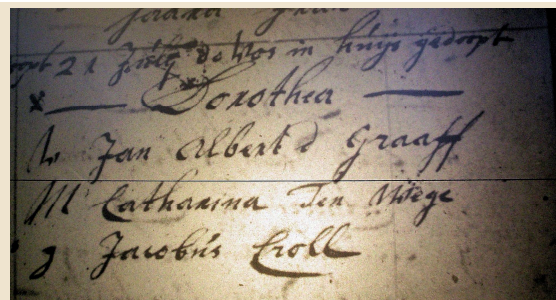 21 July do Vos in huijs gedoopt
x — Dorothea —
V Jan Albert d' Graaff
M Catharina Ten Wege
g Jacobus Croll